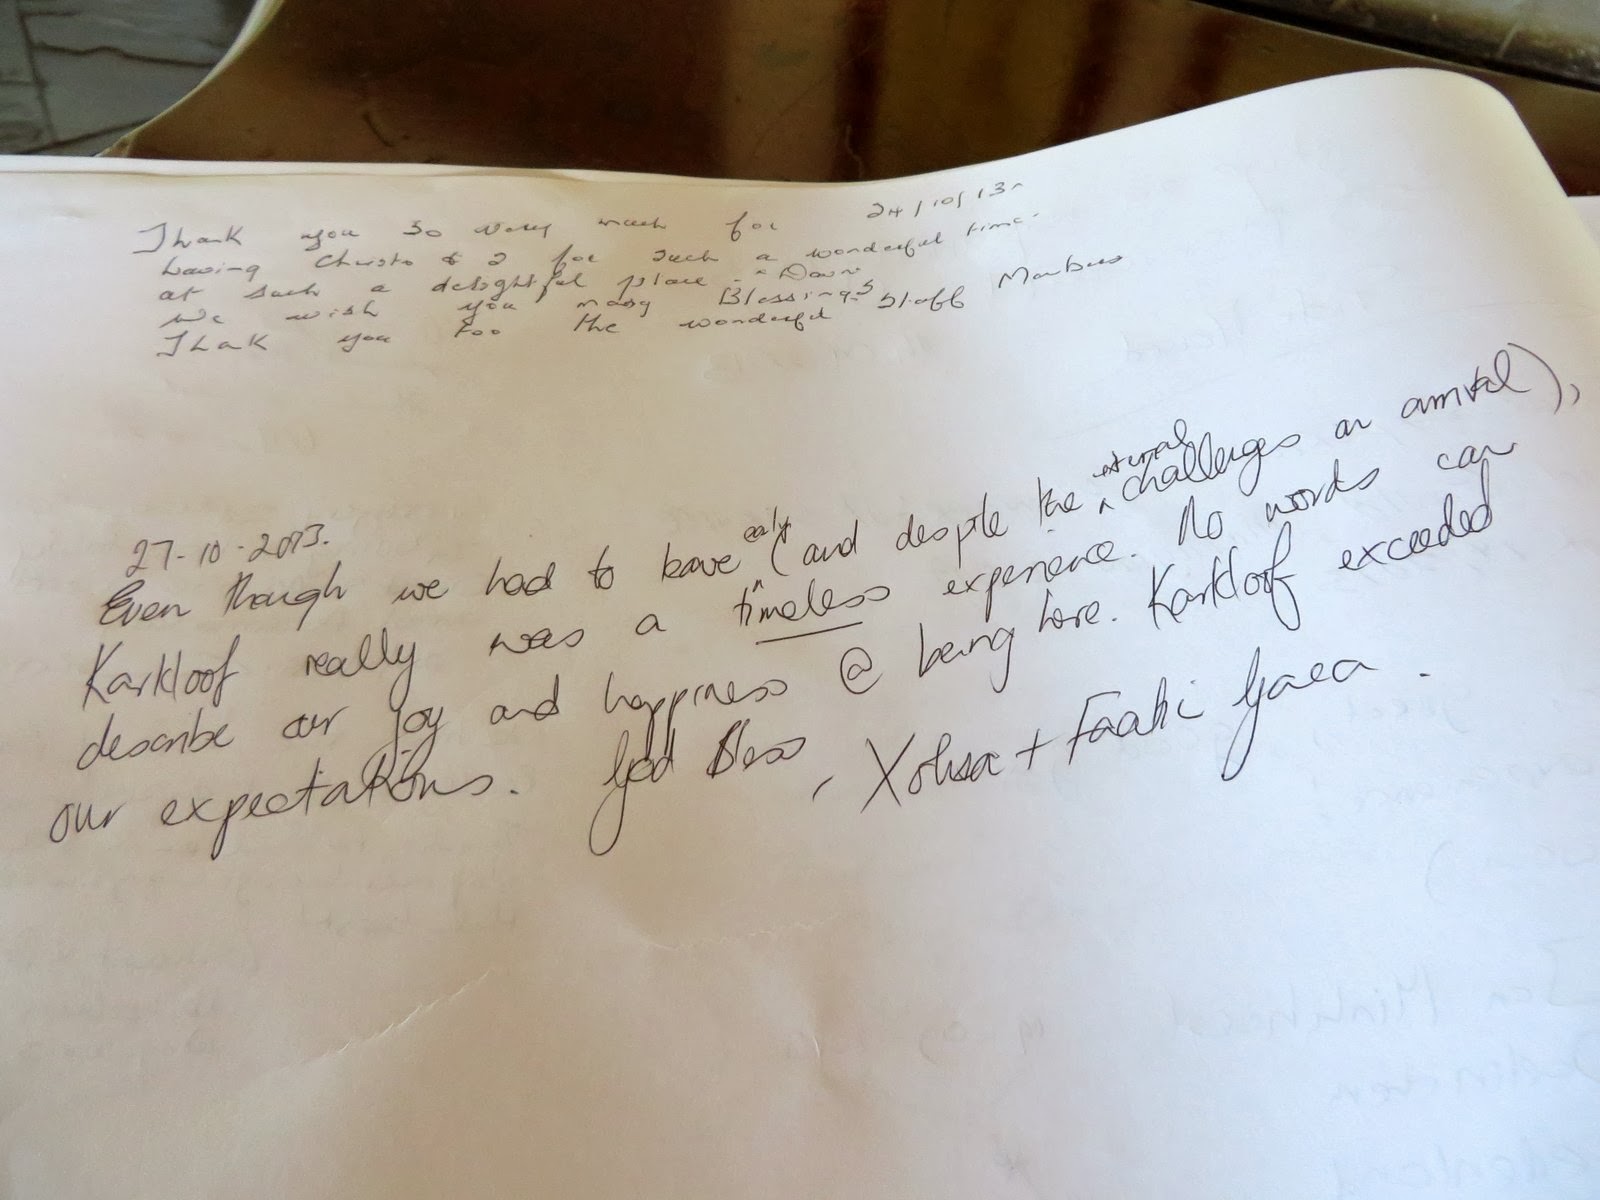 24/10/13
Thank you so very much for
having Christo & I for such a wonderful time.
at such a delightful place - Dawn
we wish you many Blessings
Thak you too the wonderful staff
27-10-2013.
Even though we had to leave early (and despite the external challenges on arrival),
Karkloof really was a timeless experience. No words can
describe our joy and happiness @ being here. Karkloof exceeded
our expectations. God Bless, Xolisa + Faaki Gaea.